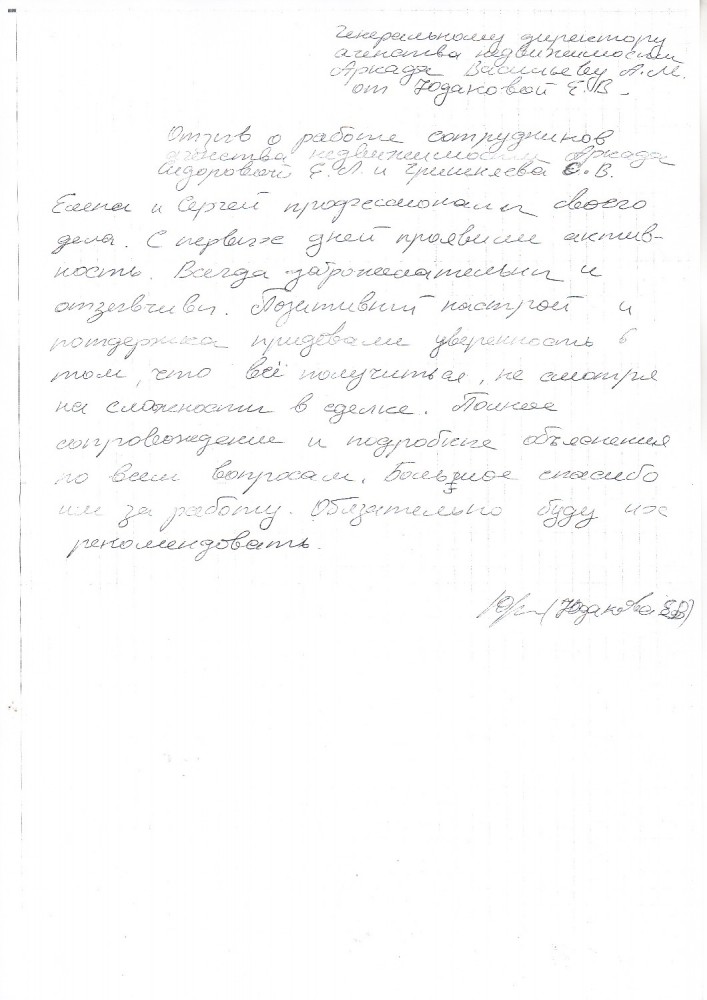 Генеральному директору
агенства недвижимости
Аркада Васильеву А.М.
от Юдаковой Е.В.
Отзыв о работе сотрудников
агенства недвижимости Аркада
Сидоровой Е.Л и Гришняева С.В.
Елена и Сергей профессионалы своего
дела. С первых дней проявили актив-
ность. Всегда доброжелательны и
отзывчивы. Позитивный настрой и
потдержка придавали уверенность в
том, что всё получиться, не смотря
на сложности в сделке. Полное
сопровождение и подробные объяснения
по всем вопросам. Большое спасибо
им за работу. Обязательно буду их
рекомендовать.
(Юдакова Е.В)